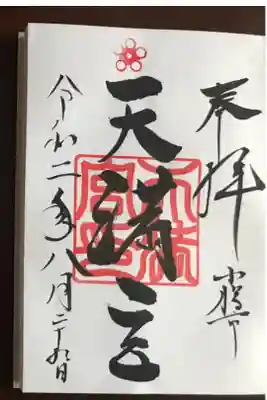 奉拝
天満宮
令和二年八月二十九日